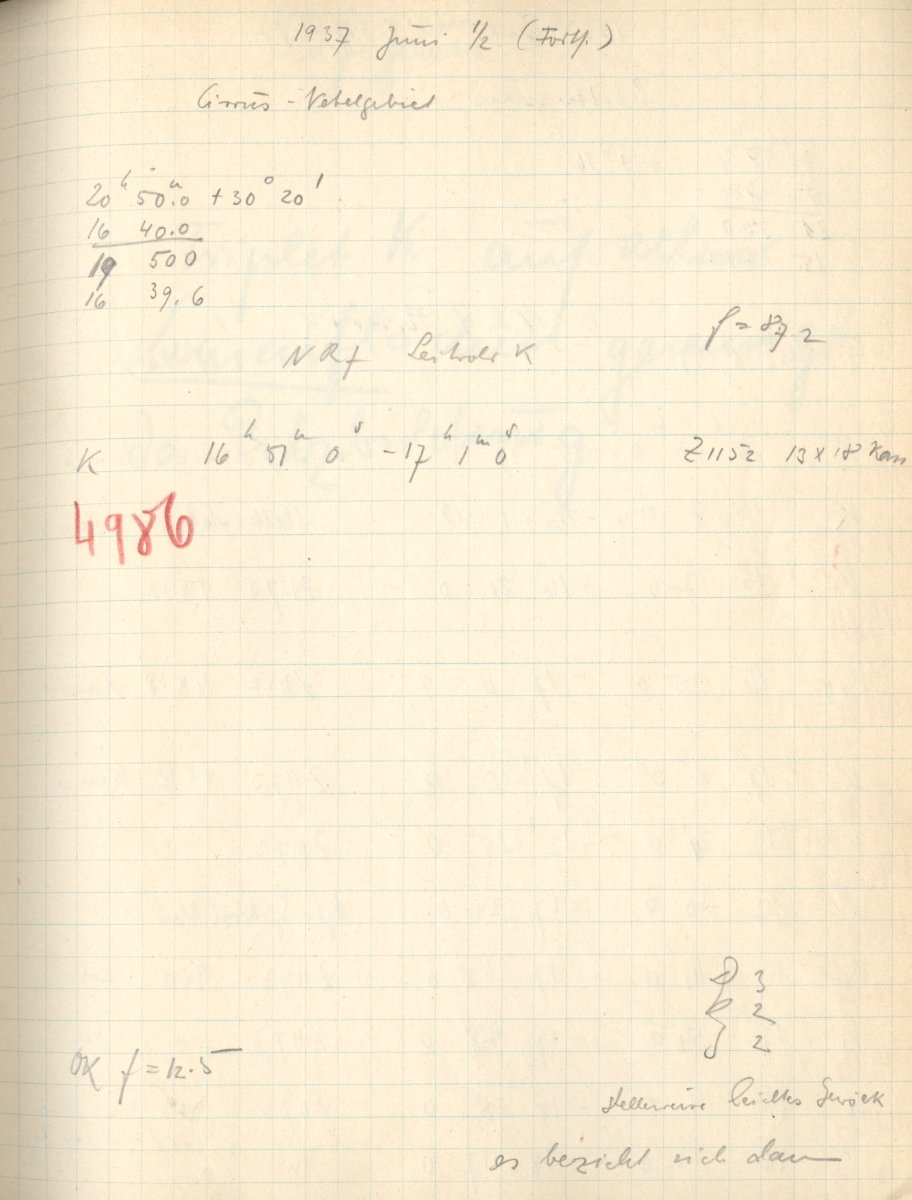 1937 Juni 1/2 (Forts.)
Cirrus-Nebelgebiet
20h 50m.0 +30° 20'
16 40.0
19 50 0
16 39.6
f = 87 2
Leitrohr K
K 16h 51m 0s - 17h 1m 0s Z 1152 13 x 18 Kass
4986
3
2
2
f = 12.5
stellenweise leichtes Gewölk
es bezieht sich dann